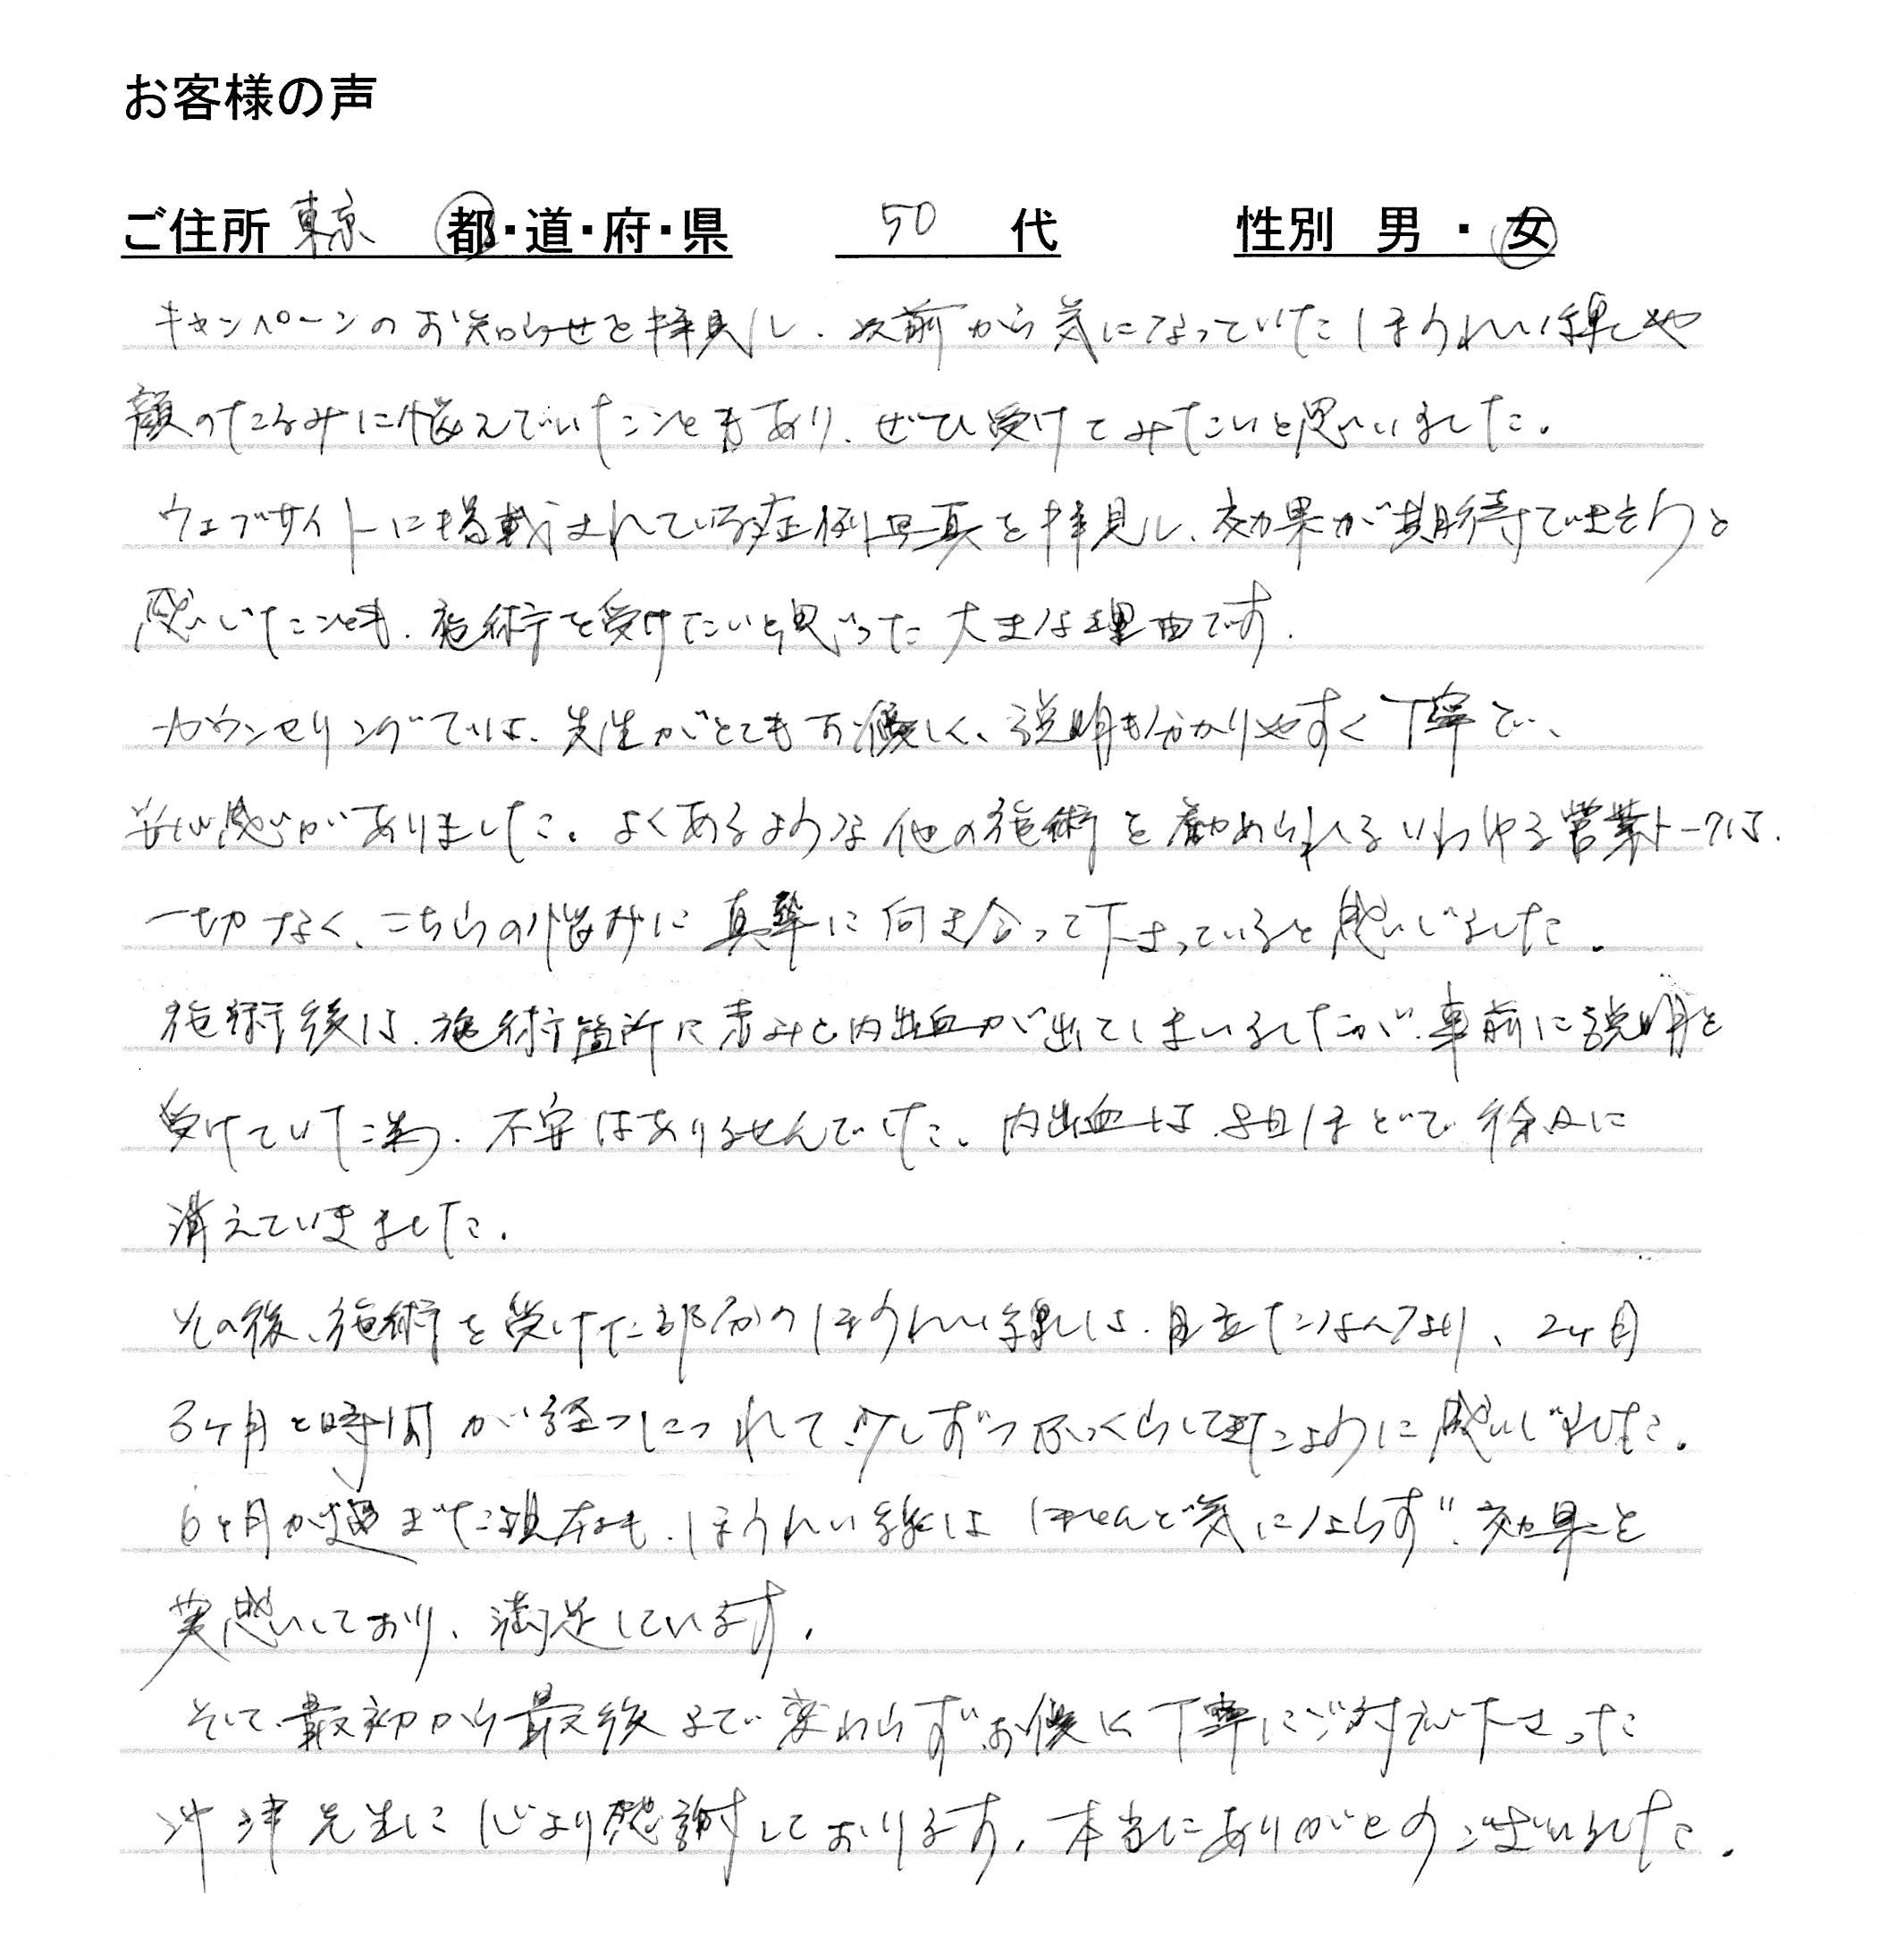 お客様の声
ご住所 東京 都・道・府・県 50 代 性別 男・女
キャンペーンのお知らせを拝見し、以前から気になっていたほうれい線や
顔のたるみに悩んでいたこともあり、ぜひ受けてみたいと思いました。
ウェブサイトに搭載されている症例写真を拝見し、効果が期待できそうと
感じたことも、施術を受けたいと思った大きな理由です。
カウンセリングでは、先生がとてもお優しく、説明も分かりやすく丁寧で、
安心感がありました。よくあるような他の施術を勧められるいわゆる営業トークは、
一切なく、こちらの悩みに真摯に向き合って下さっていると感じました。
施術後は、施術箇所に赤みと内出血が出てしまいましたが、事前に説明を
受けていた為、不安はありませんでした。内出血は、8日ほどで徐々に
消えていきました。
その後、施術を受けた部分のほうれい線は、目立たなくなり、2ヶ月
3ヶ月と時間が経つにつれて少しずつふっくらしてきたように感じました。
6ヶ月が過ぎた現在も、ほうれい線はほとんど気にならず、効果を
実感しており、満足しています。
そして、最初から最後まで変わらず、お優しく丁寧にご対応下さった
沖津先生に心より感謝しております。本当にありがとうございました。